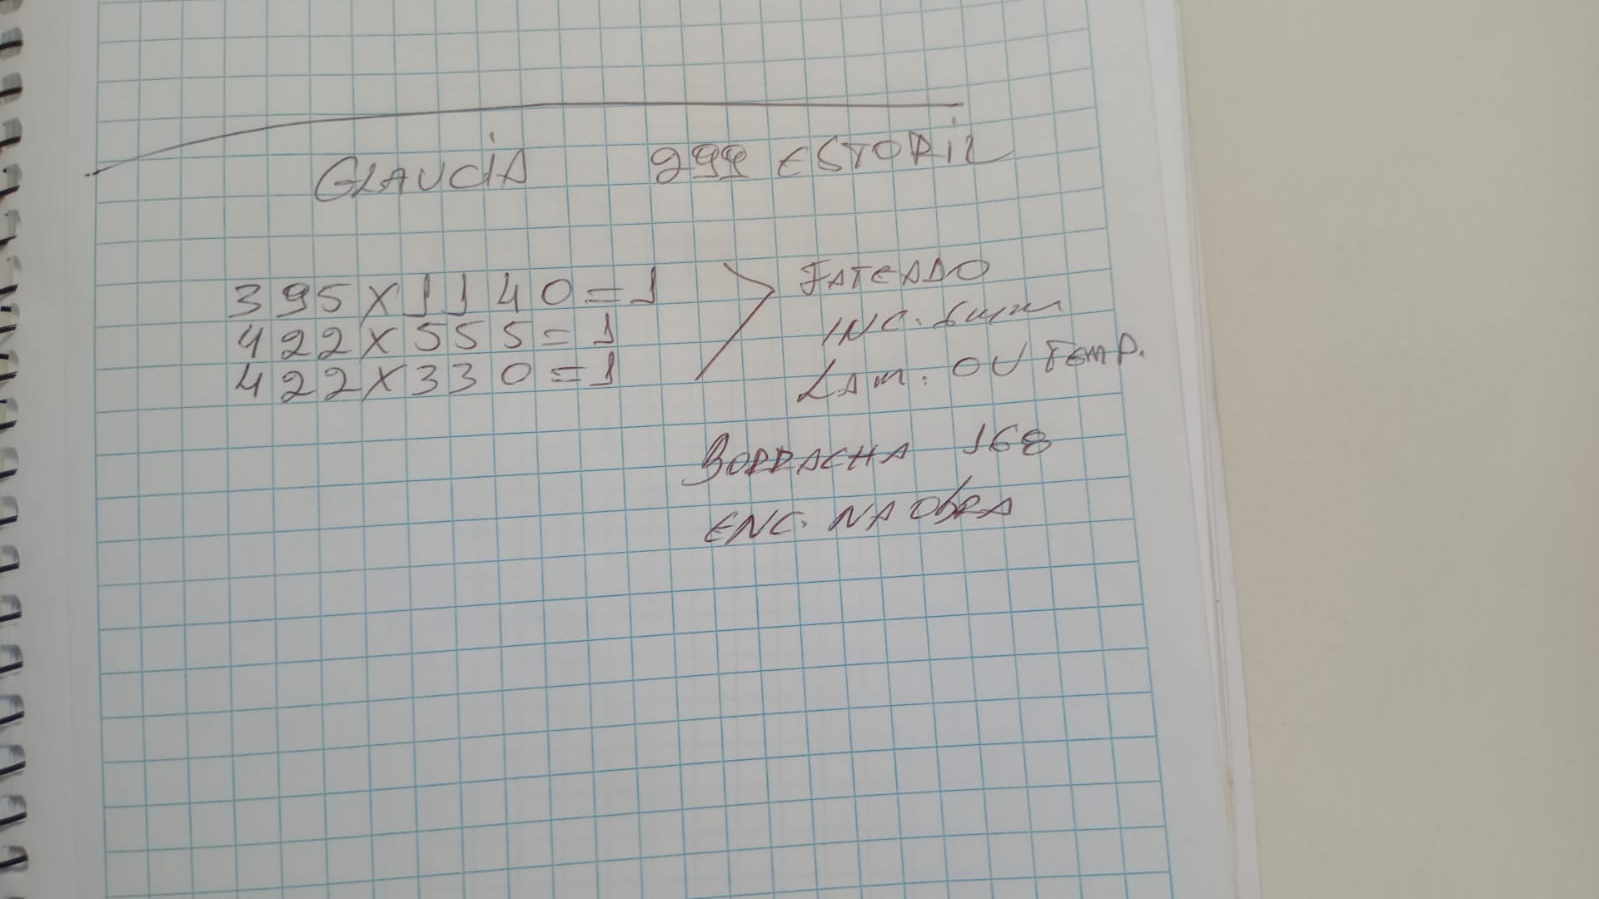 GLAUCIA 299 ESTORIL
395X1140=1
422X555=1
422X330=1
FATEADO
INC. 6mm
LAM. OU TEMP.
BORRACHA 168
ENC. NA OBRA